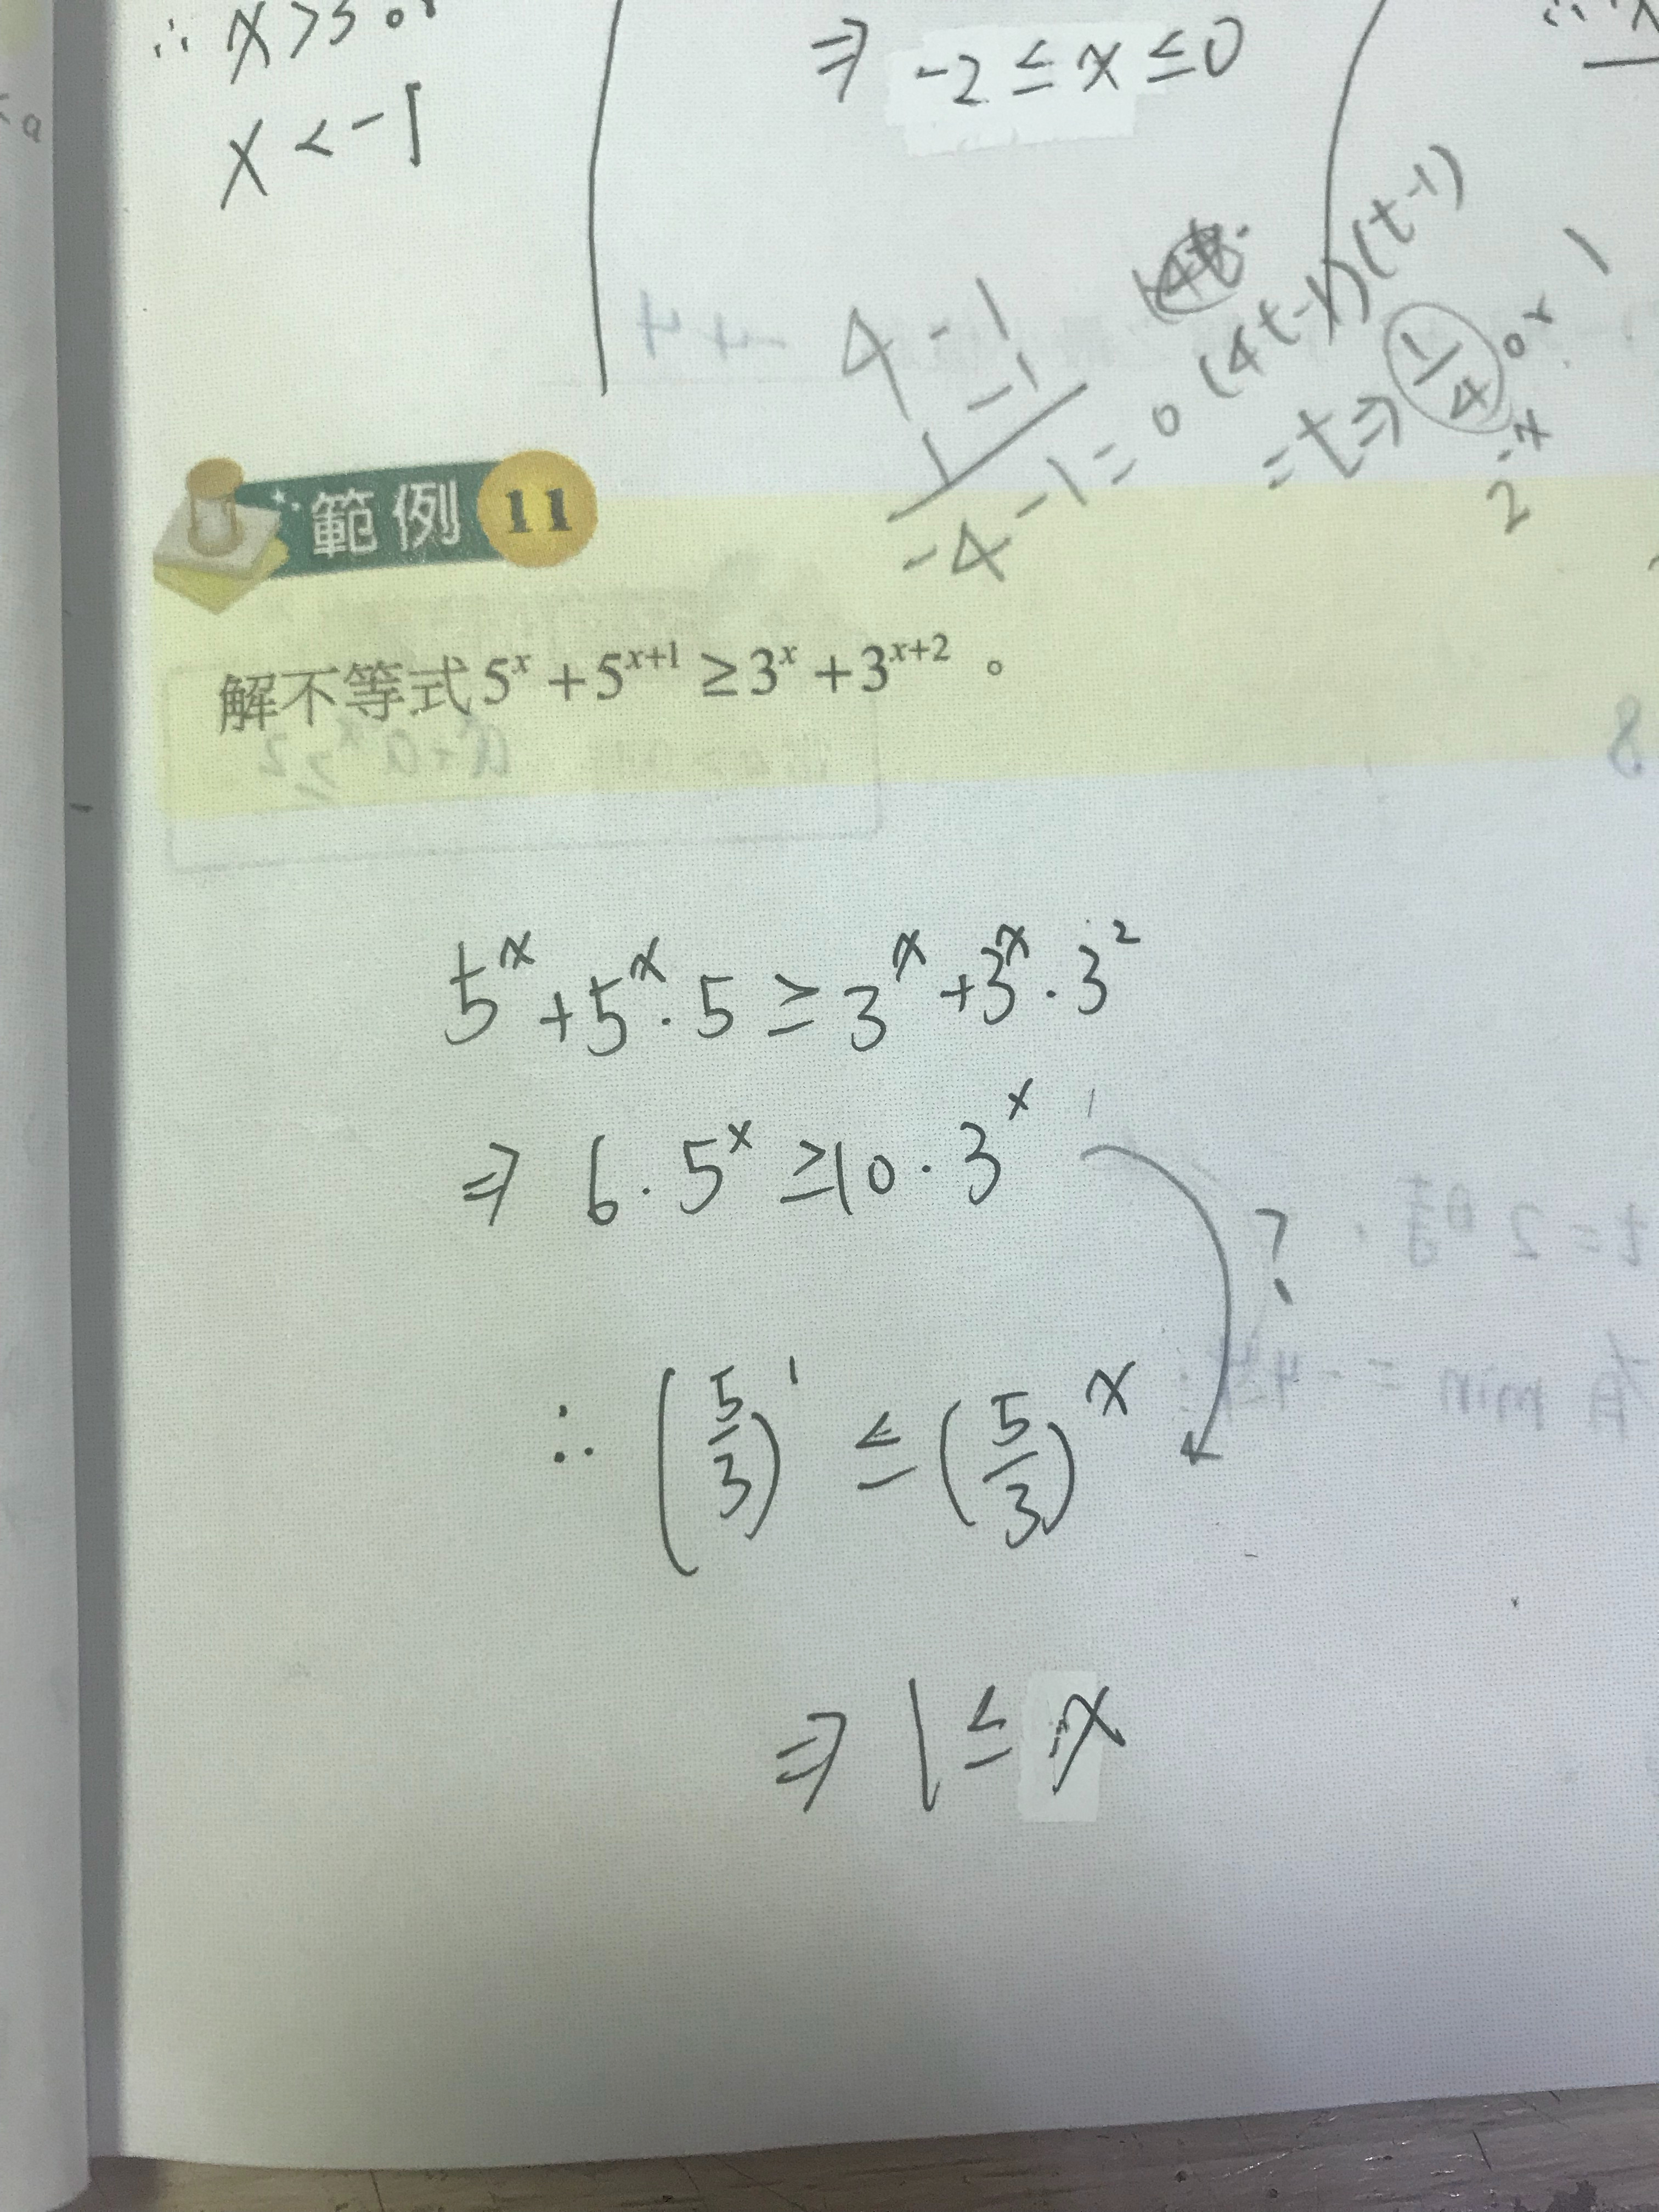 ∴ x > 3 or
x < -1
⇒ -2 ≤ x ≤ 0
4 -1
1 -1
-4 -1 = 0
(4t-1)(t-1)
= t ⇒ 1/4 or 1
2^-x
範例 11
解不等式 5^x + 5^{x+1} ≥ 3^x + 3^{x+2}。
5^x + 5^x · 5 ≥ 3^x + 3^x · 3^2
⇒ 6 · 5^x ≥ 10 · 3^x
?
∴ (5/3)^1 ≤ (5/3)^x
⇒ 1 ≤ x